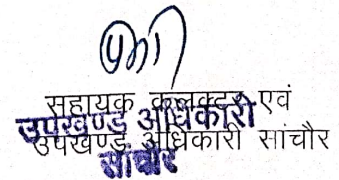 सहायक कलक्टर एवं
उपखण्ड अधिकारी
उपखण्ड अधिकारी सांचौर
सांचौर